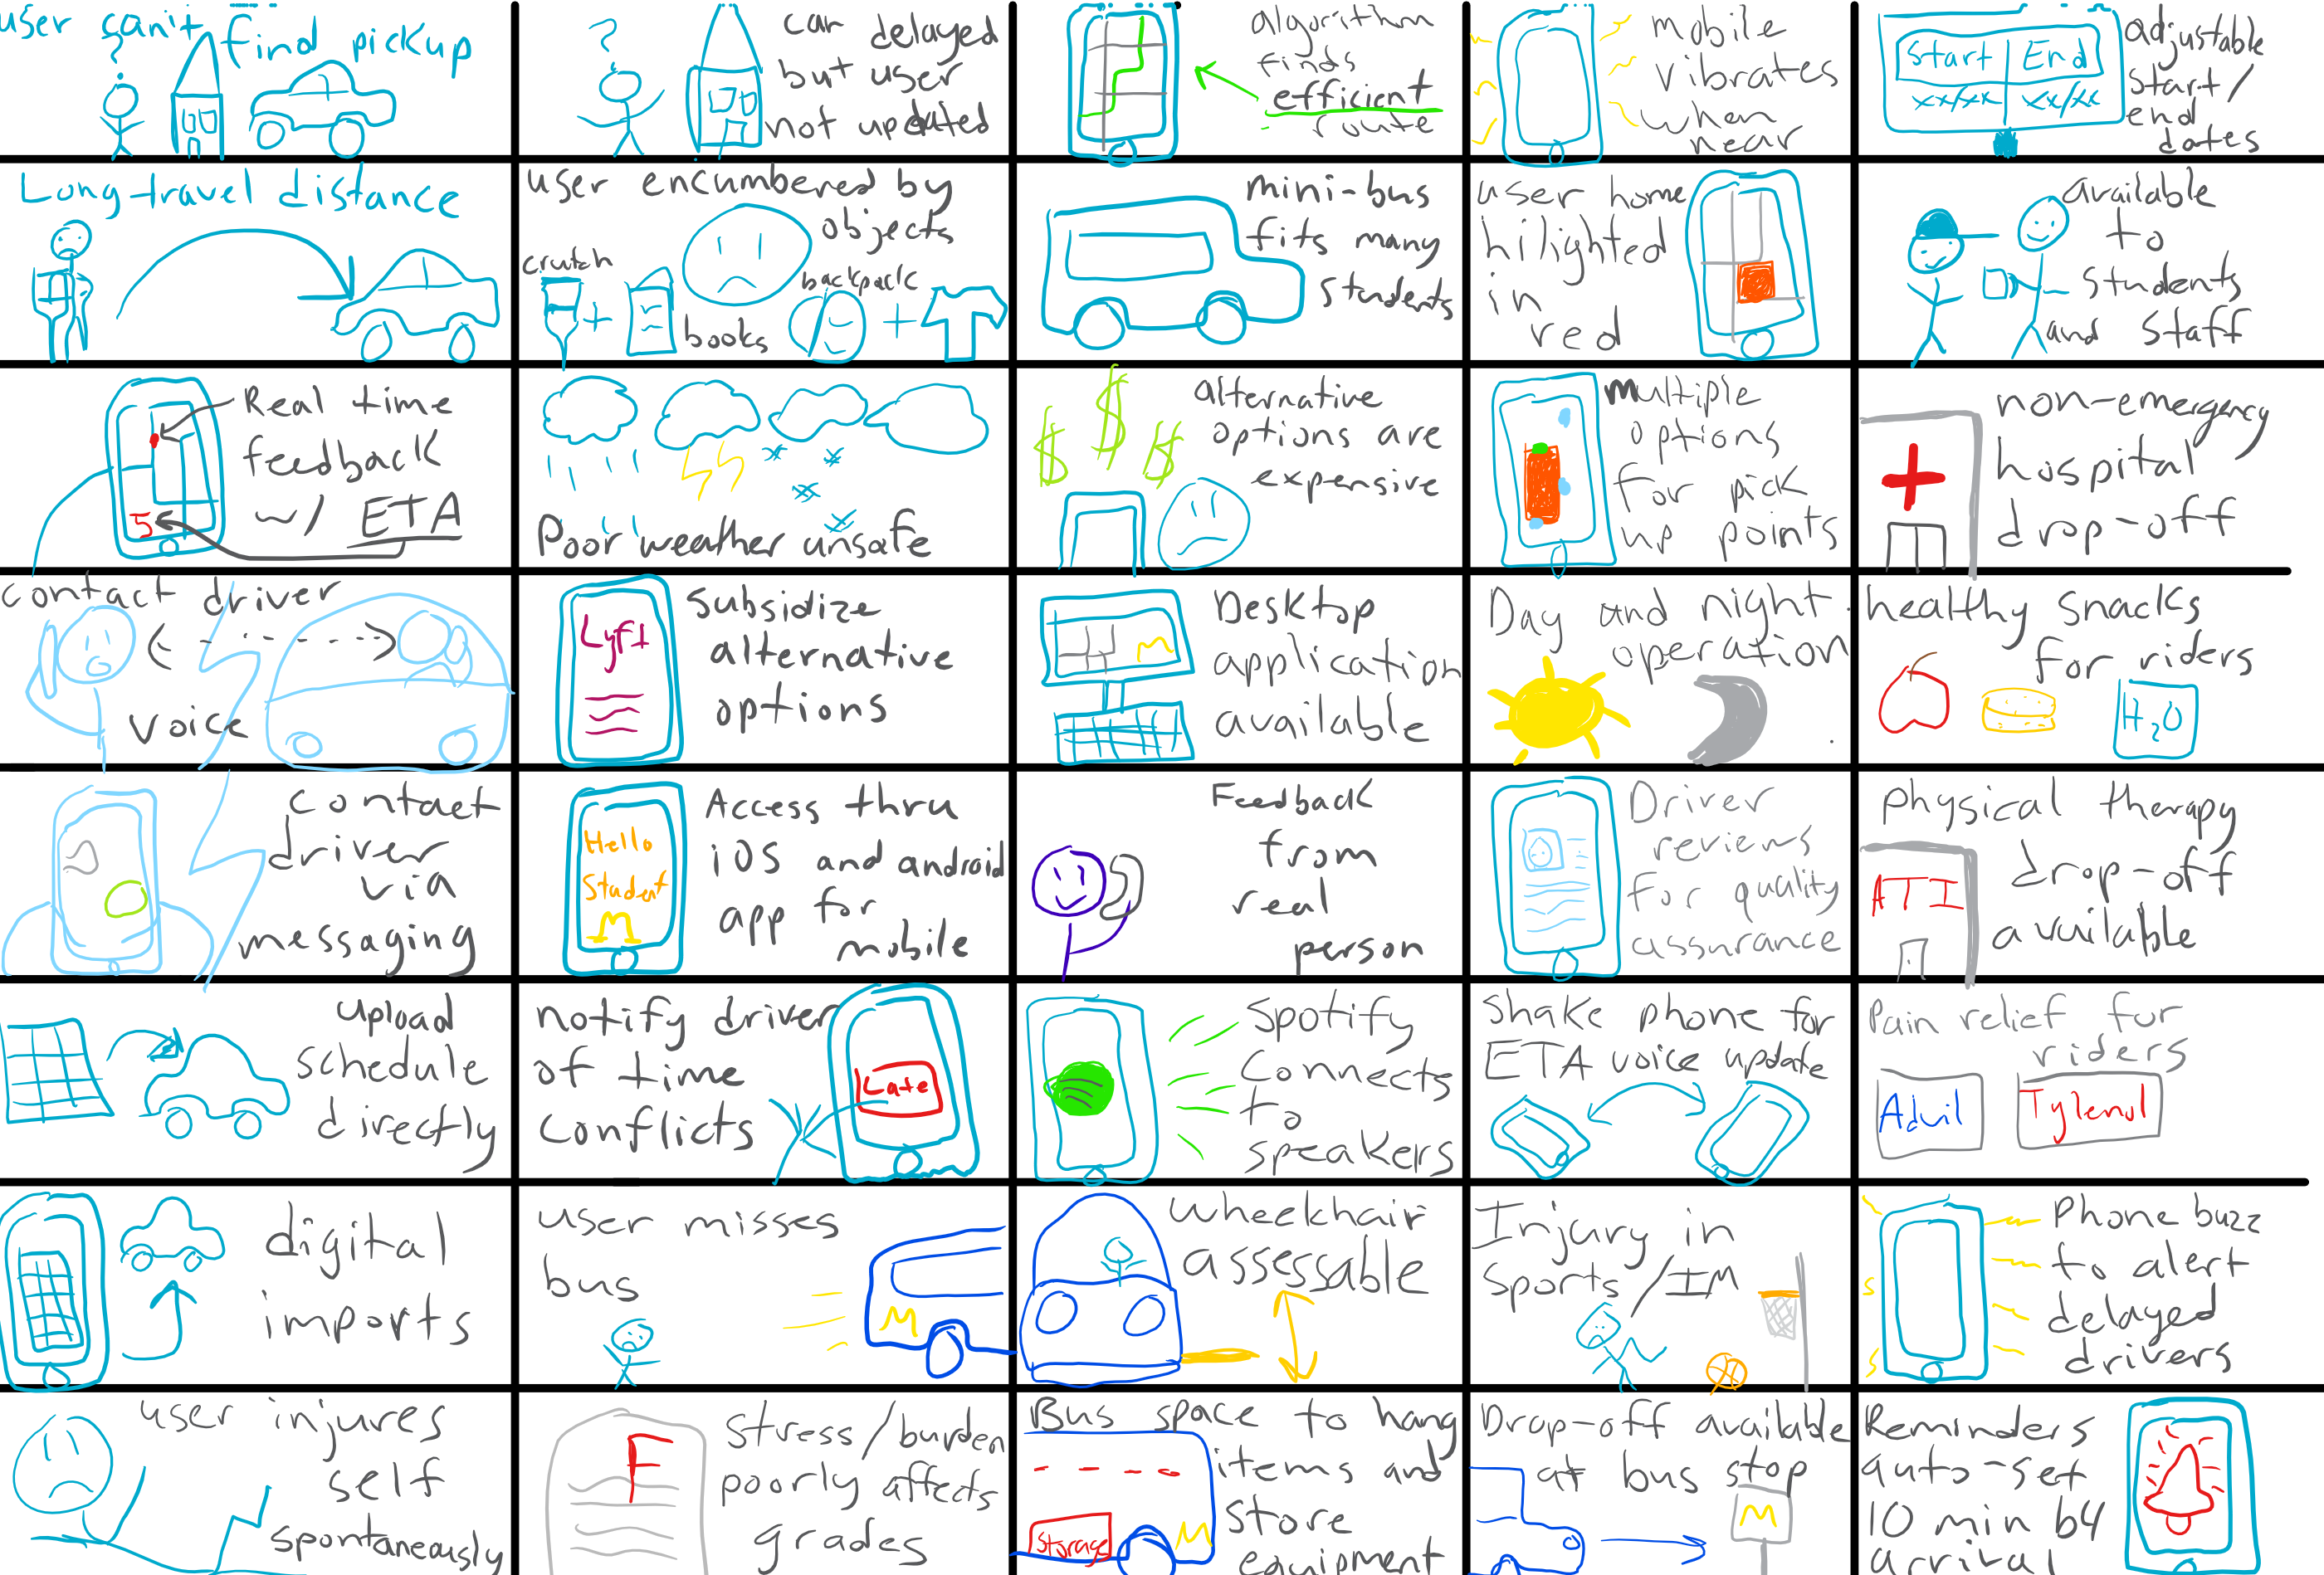 user can't find pickup
?
?
car delayed
but user
not updated
algorithm
finds
efficient
route
mobile
vibrates
when
near
Start End
xx/xx xx/xx
adjustable
start/
end
dates
Long travel distance
user encumbered by
objects
crutch
+
books
backpack
+
mini-bus
fits many
students
user home
hilighted
in
red
available
to
students
and staff
Real time
feedback
w/ ETA
5
Poor weather unsafe
$ $ $
alternative
options are
expensive
multiple
options
for pick
up points
non-emergency
hospital
drop-off
contact driver
voice
Lyft
Subsidize
alternative
options
Desktop
application
available
M
Day and night
operation
healthy snacks
for riders
H2O
contact
driver
via
messaging
Hello
Student
M
Access thru
iOS and android
app for
mobile
Feedback
from
real
person
Driver
reviews
for quality
assurance
physical therapy
drop-off
available
ATI
upload
schedule
directly
notify driver
of time
conflicts
Late
Spotify
connects
to
speakers
Shake phone for
ETA voice update
Pain relief for
riders
Advil
Tylenol
digital
imports
user misses
bus
M
wheelchair
assessable
Injury in
sports/IM
Phone buzz
to alert
delayed
drivers
user injures
self
spontaneously
F
Stress/burden
poorly affects
grades
Bus space to hang
items and
store
equipment
Storage
M
Drop-off available
at bus stop
M
Reminders
auto-set
10 min b4
arrival